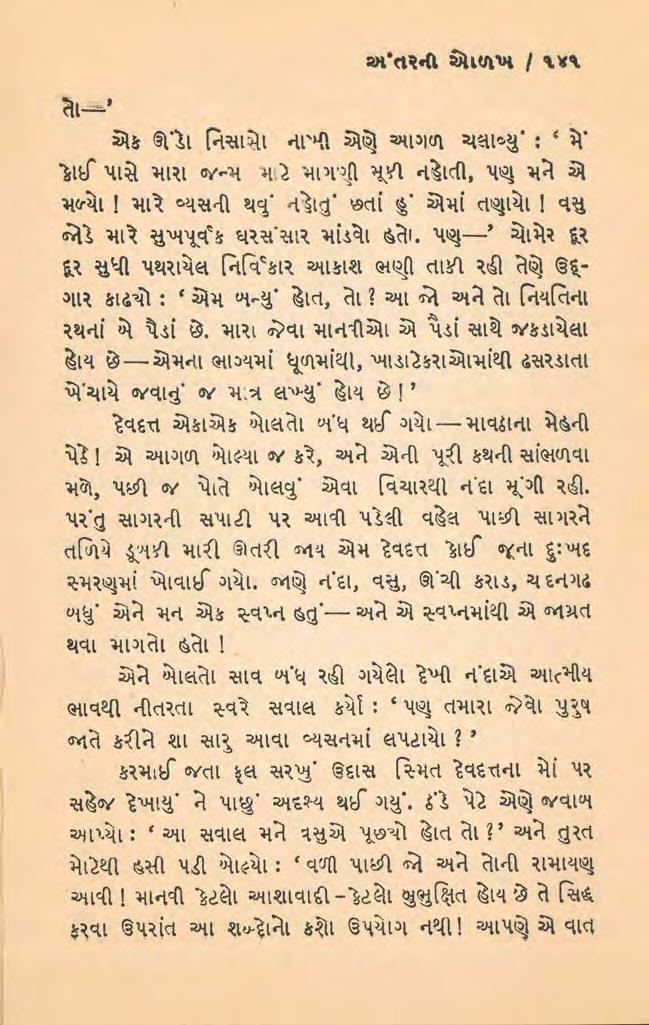 અંતરની ઓળખ / ૧૪૧
તો—’
એક ઊંડો નિસાસો નાખી એણે આગળ ચલાવ્યું : ‘ મેં
કોઈ પાસે મારા જન્મ માટે માગણી મૂકી નહોતી, પણ મને એ
મળ્યો ! મારે વ્યસની થવું નહોતું છતાં હું એમાં તણાયો ! વસુ
જોડે મારે સુખપૂર્વક ઘરસંસાર માંડવો હતો. પણ—’ ચોમેર દૂર
દૂર સુધી પથરાયેલ નિર્વિકાર આકાશ ભણી તાકી રહી તેણે ઉદ્-
ગાર કાઢયો : ‘ એમ બન્યું હોત, તો ? આ જો અને તો નિયતિના
રથનાં બે પૈડાં છે. મારા જેવા માનવીઓ એ પૈડાં સાથે જકડાયેલા
હોય છે—એમના ભાગ્યમાં ધૂળમાંથી, ખાડાટેકરાઓમાંથી ઢસરડાતા
ખેંચાયે જવાનું જ માત્ર લખ્યું હોય છે ! ’
દેવદત્ત એકાએક બોલતો બંધ થઈ ગયો—માવઠાના મેહની
પેઠે ! એ આગળ બોલ્યા જ કરે, અને એની પૂરી કથની સાંભળવા
મળે, પછી જ પોતે બોલવું એવા વિચારથી નંદા મૂંગી રહી.
પરંતુ સાગરની સપાટી પર આવી પડેલી વહેલ પાછી સાગરને
તળિયે ડૂબકી મારી ઊતરી જાય એમ દેવદત્ત કોઈ જૂના દુઃખદ
સ્મરણમાં ખોવાઈ ગયો. જાણે નંદા, વસુ, ઊંચી કરાડ, ચંદનગઢ
બધું એને મન એક સ્વપ્ન હતું—અને એ સ્વપ્નમાંથી એ જાગ્રત
થવા માગતો હતો !
એને બોલતો સાવ બંધ રહી ગયેલો દેખી નંદાએ આત્મીય
ભાવથી નીતરતા સ્વરે સવાલ કર્યો : ‘ પણ તમારા જેવો પુરુષ
જાતે કરીને શા સારુ આવા વ્યસનમાં લપટાયો ? ’
કરમાઈ જતા ફૂલ સરખું ઉદાસ સ્મિત દેવદત્તના મોં પર
સહેજ દેખાયું ને પાછું અદશ્ય થઈ ગયું. ઠંડે પેટે એણે જવાબ
આપ્યો : ‘ આ સવાલ મને વસુએ પૂછયો હોત તો ?’ અને તુરત
મોટેથી હસી પડી બોલ્યો : ‘ વળી પાછી જો અને તોની રામાયણ
આવી ! માનવી કેટલો આશાવાદી – કેટલો બુભુક્ષિત હોય છે તે સિદ્ધ
કરવા ઉપરાંત આ શબ્દોનો કશો ઉપયોગ નથી ! આપણે એ વાત